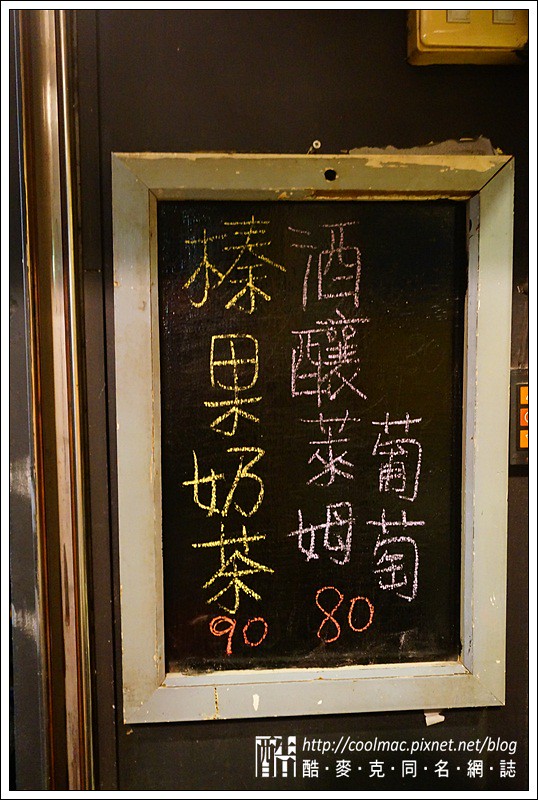 葡萄
酒釀萊姆
80
榛果奶茶
90
http://coolmac.pixnet.net/blog
酷·麥·克·同·名·網·誌